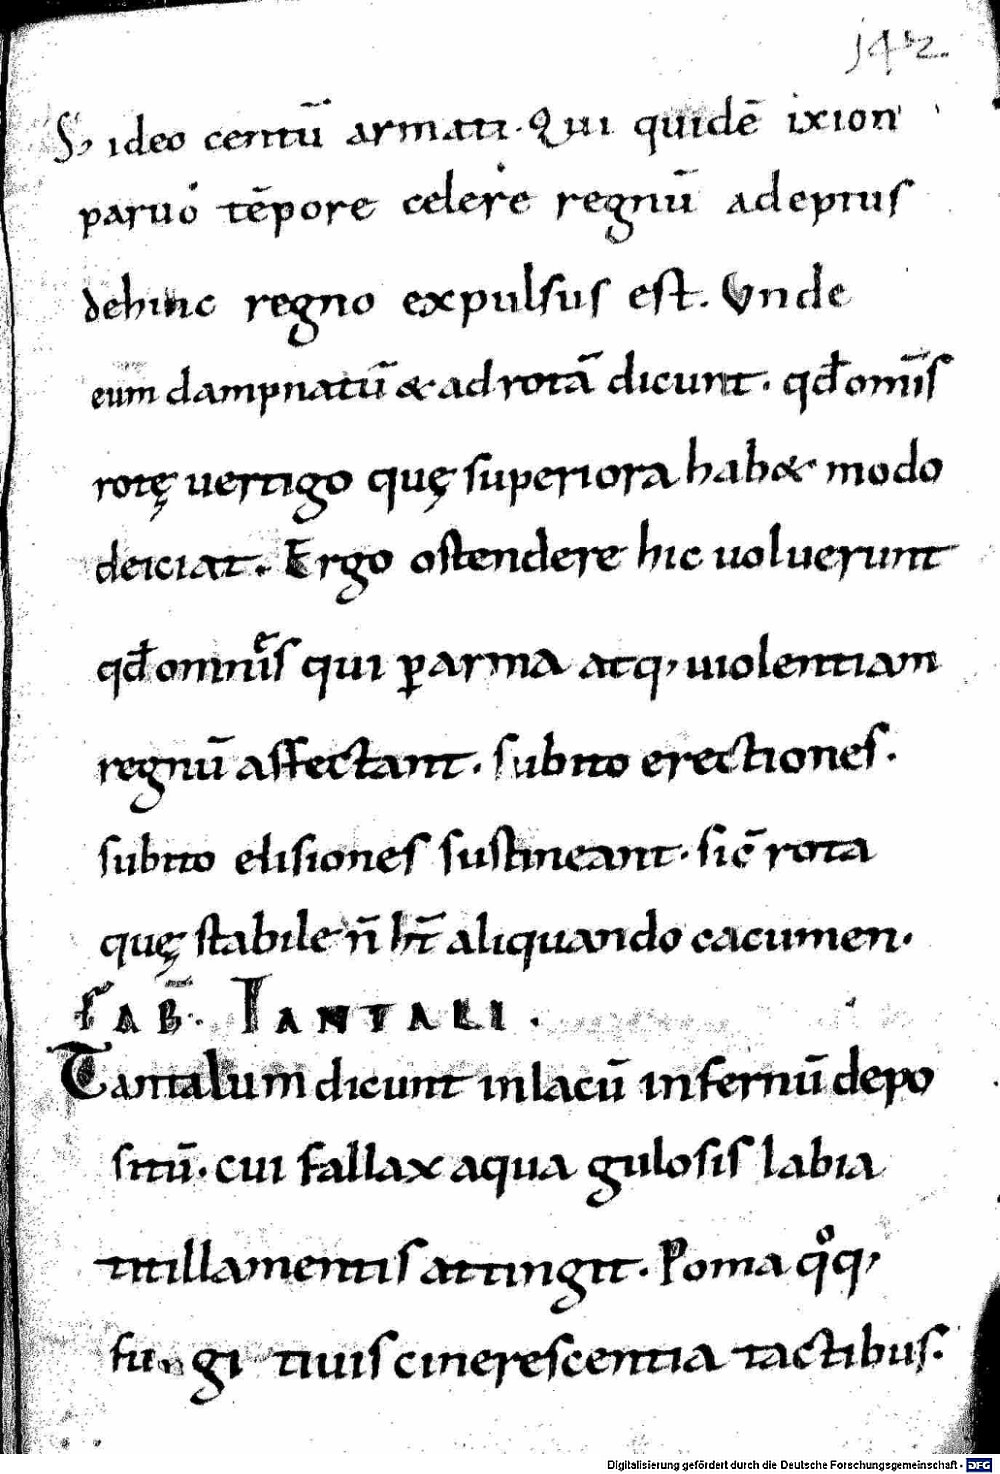 142.
S; ideo centū armati. Qui quidē ixion
paruo tēpore celere regnū adeptus
dehinc regno expulsus est. Vnde
eum dampnatū & ad rotā dicunt. qđ om̄is
rotę uertigo quę superiora hab& modo
deiciat. Ergo ostendere hic uoluerunt
qđ omnis qui ꝑ arma atq; uiolentiam
regnū affectant. subito erectiones.
subito elisiones sustineant. sic̄ rota
quę stabile n̄ ht̄ aliquando cacumen.
FAB̄. TANTALI.
Tantalum dicunt in lacū infernū depo
situ̅. cui fallax aqua gulosis labia
titillamentis attingit. Poma qͦq;
fungi tiuis cinerescentia tactibus.
Digitalisierung gefördert durch die Deutsche Forschungsgemeinschaft - DFG